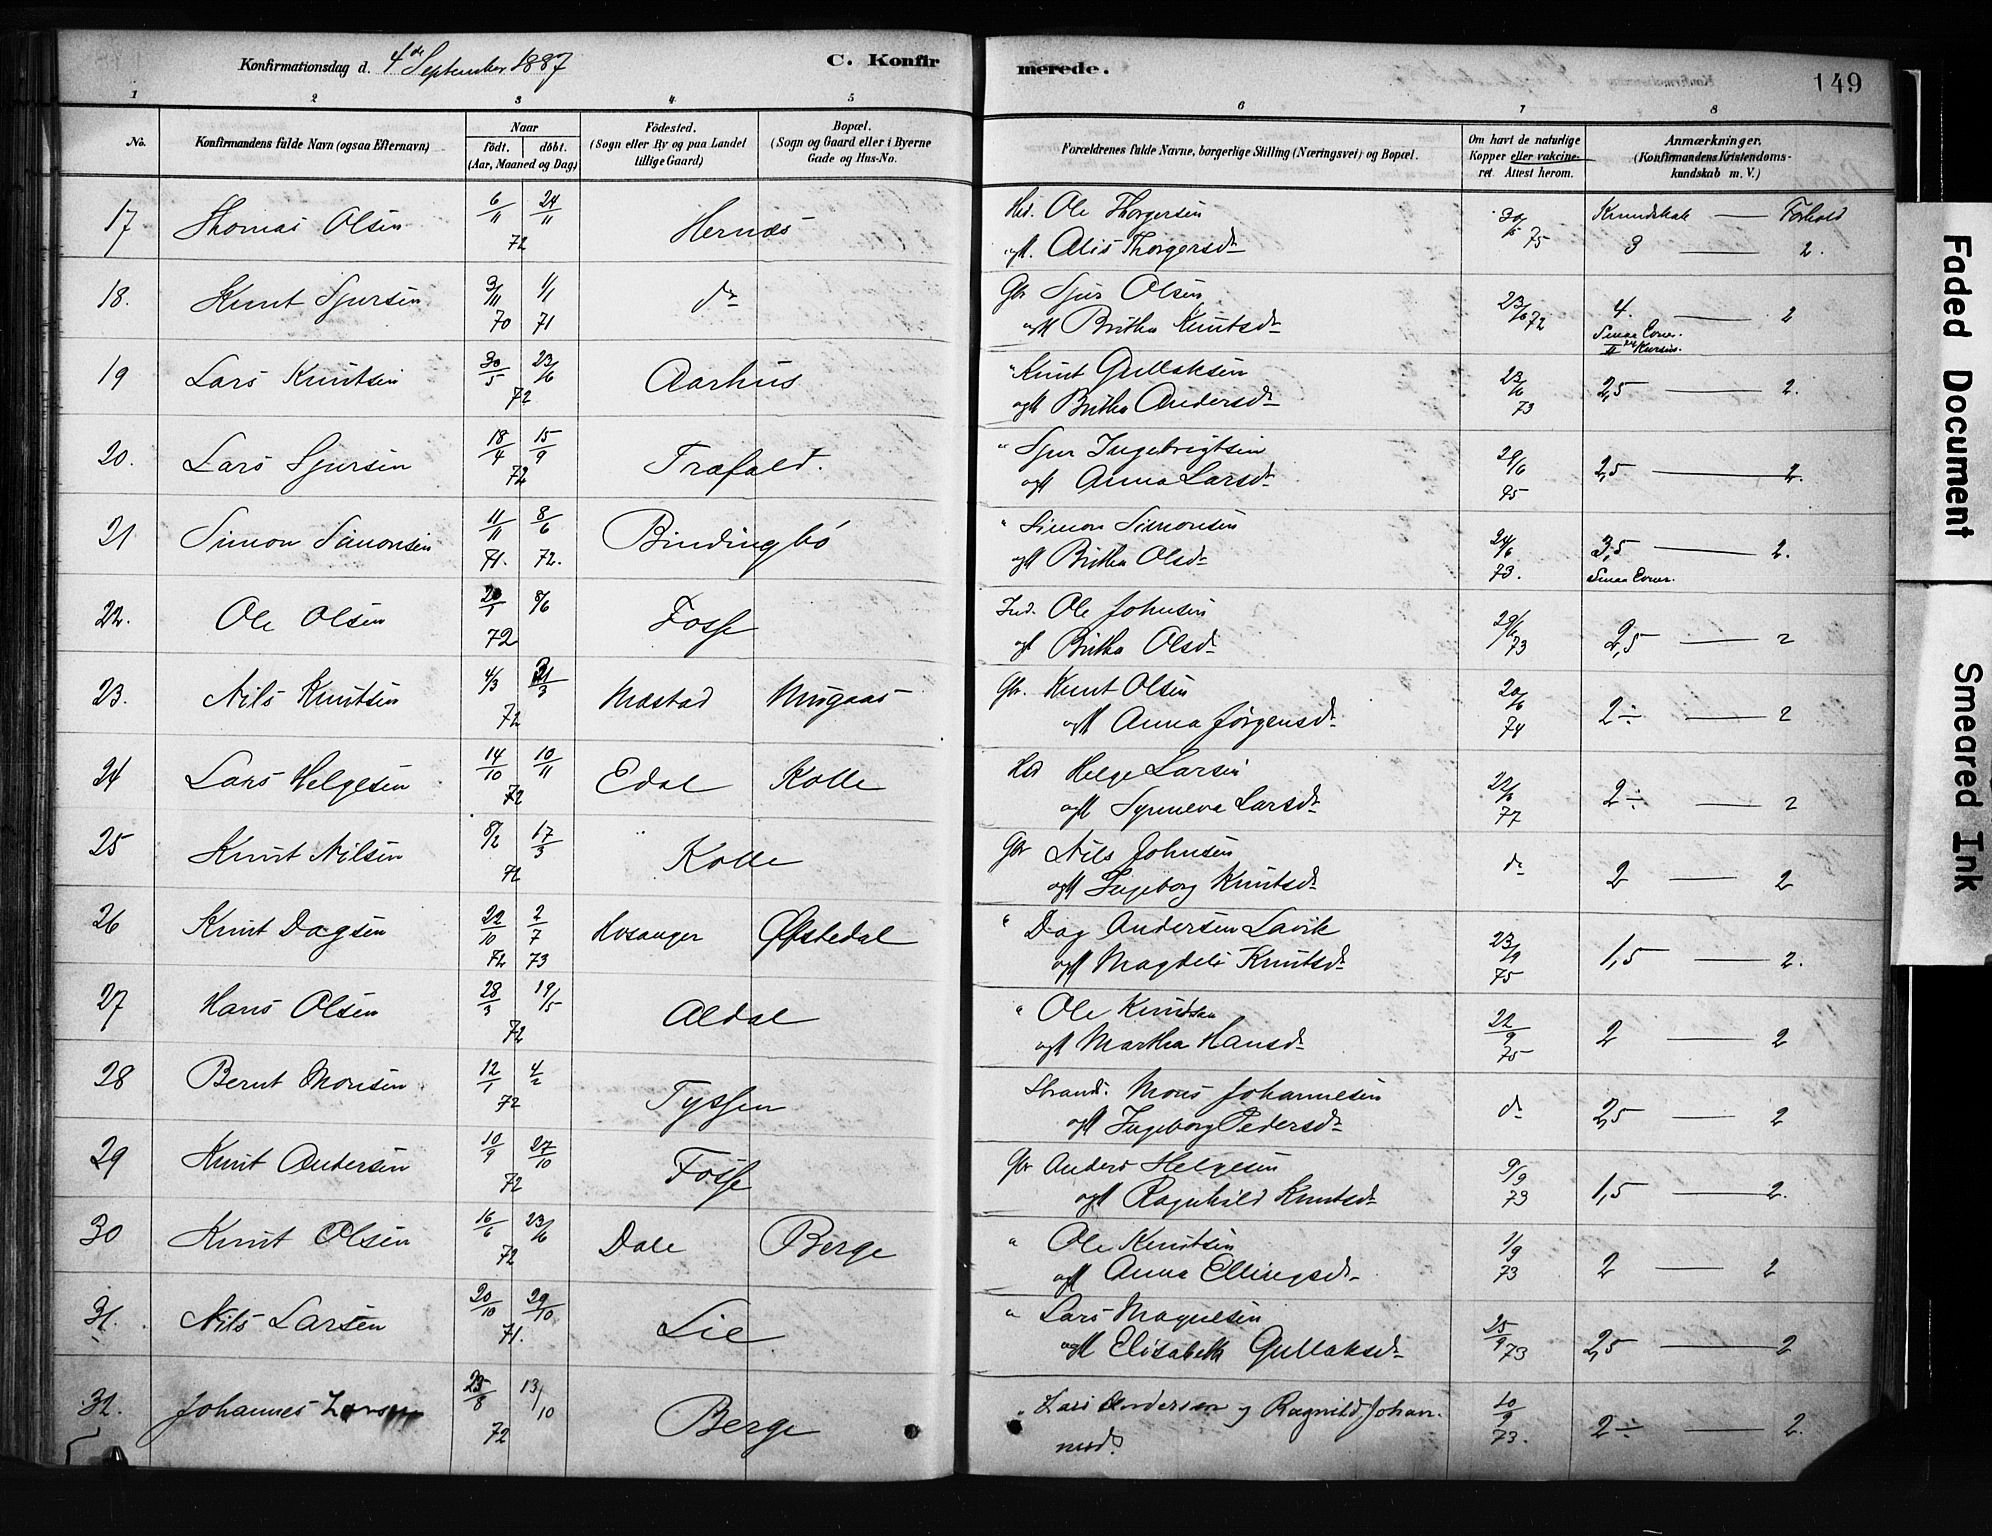 Konfirmationsdag d. 4de September 1887 C. Konfirmerede. 149
1 2 3 4 5 6 7 8
No. Konfirmandens fulde Navn (ogsaa Efternavn) Naar født. døbt. (Aar, Maaned og Dag) Födested. (Sogn eller By og paa Landet tillige Gaard) Bopæl. (Sogn og Gaard eller i Byerne Gade og Hus-No. Forældrenes fulde Navne, borgerlige Stilling (Næringsvei) og Bopæl. Om havt de naturlige Kopper eller vakcineret. Attest herom. Anmærkninger. (Konfirmandens Kristendomskundskab m. V.)
17 Thomas Olsen 6/11 24/11 72 Hernæs Hd. Ole Thorgersen 30/5 75 Kundskab — Forhold
ogH. Alis Thorgersdr 3 — 2.
18. Knut Sjursen 3/11 70 1/1 71 do Gbr Sjur Olsen 23/6 72 4. — 2
ogH Britha Knutsdr
19 Lars Knutsen 30/5 23/6 72 Aarhus " Knut Gullaksen 23/6 73 2,5 — 2.
ogH Britha Andersdr
20. Lars Sjursen 18/4 15/9 72 Træfald. " Sjur Ingebrigtsen 29/6 2,5 — 2.
ogH Anna Larsdr
21 Simon Simonsen 11/11 71. 8/6 72. Bindingbö " Simon Simonsen 24/6 73. 3,5 — 2.
ogH Britha Olsdr
22. Ole Olsen 20/1 8/6 72 Fosse Ind. Ole Johnsen 29/6 73 2,5 — 2
ogH Britha Olsdr
23. Nils Knutsen 4/3 31/3 72 Mæstad Misgaas Gbr. Knut Olsen 20/6 74 2÷ — 2
ogH Anna Jörgensdr
24 Lars Helgesen 14/10 10/11 72 Edal Kolle Hd Helge Larsen 22/6 77 2÷ — 2
ogH Synneva Larsdr
25 Knut Nilsen 8/2 17/3 72 Kolle Gbr Nils Johnsen do 2 — 2
ogH Ingeborg Knutsdr
26 Knut Dagsen 22/10 72 2/7 73 Hosanger Øfstedal " Dag Andersen Lavik 23/9 75 1,5 — 2.
ogH Magdeli Knutsdr
27 Hans Olsen 28/3 19/5 72 Aldal " Ole Knudsen 22/9 75 2 — 2
ogH Martha Hansdr
28 Bernt Monsen 12/1 4/2 72 Tyssen Strands. Mons Johannesen do 2,5 — 2
ogH Ingeborg Pedersdr
29 Knut Andersen 10/9 27/10 72 Fosse Gbr Anders Helgesen 9/9 73 1,5 — 2.
ogH Ragnhild Knutsdr
30 Knut Olsen 16/6 23/6 72 Dale Berge " Ole Knutsen 1/9 73 2 — 2
ogH Anna Ellingsdr
31. Nils Larsen 20/10 29/10 71. Lie " Lars Magnesen 25/9 73 2,5 — 2
ogH Elisabeth Gullaksdr
32. Johannes Larsen 25/8 13/10 72 Berge " Lars Andersen og Ragnild Johan- 10/9 73. 2÷ — 2.
nesd.
Faded Document
Smeared Ink